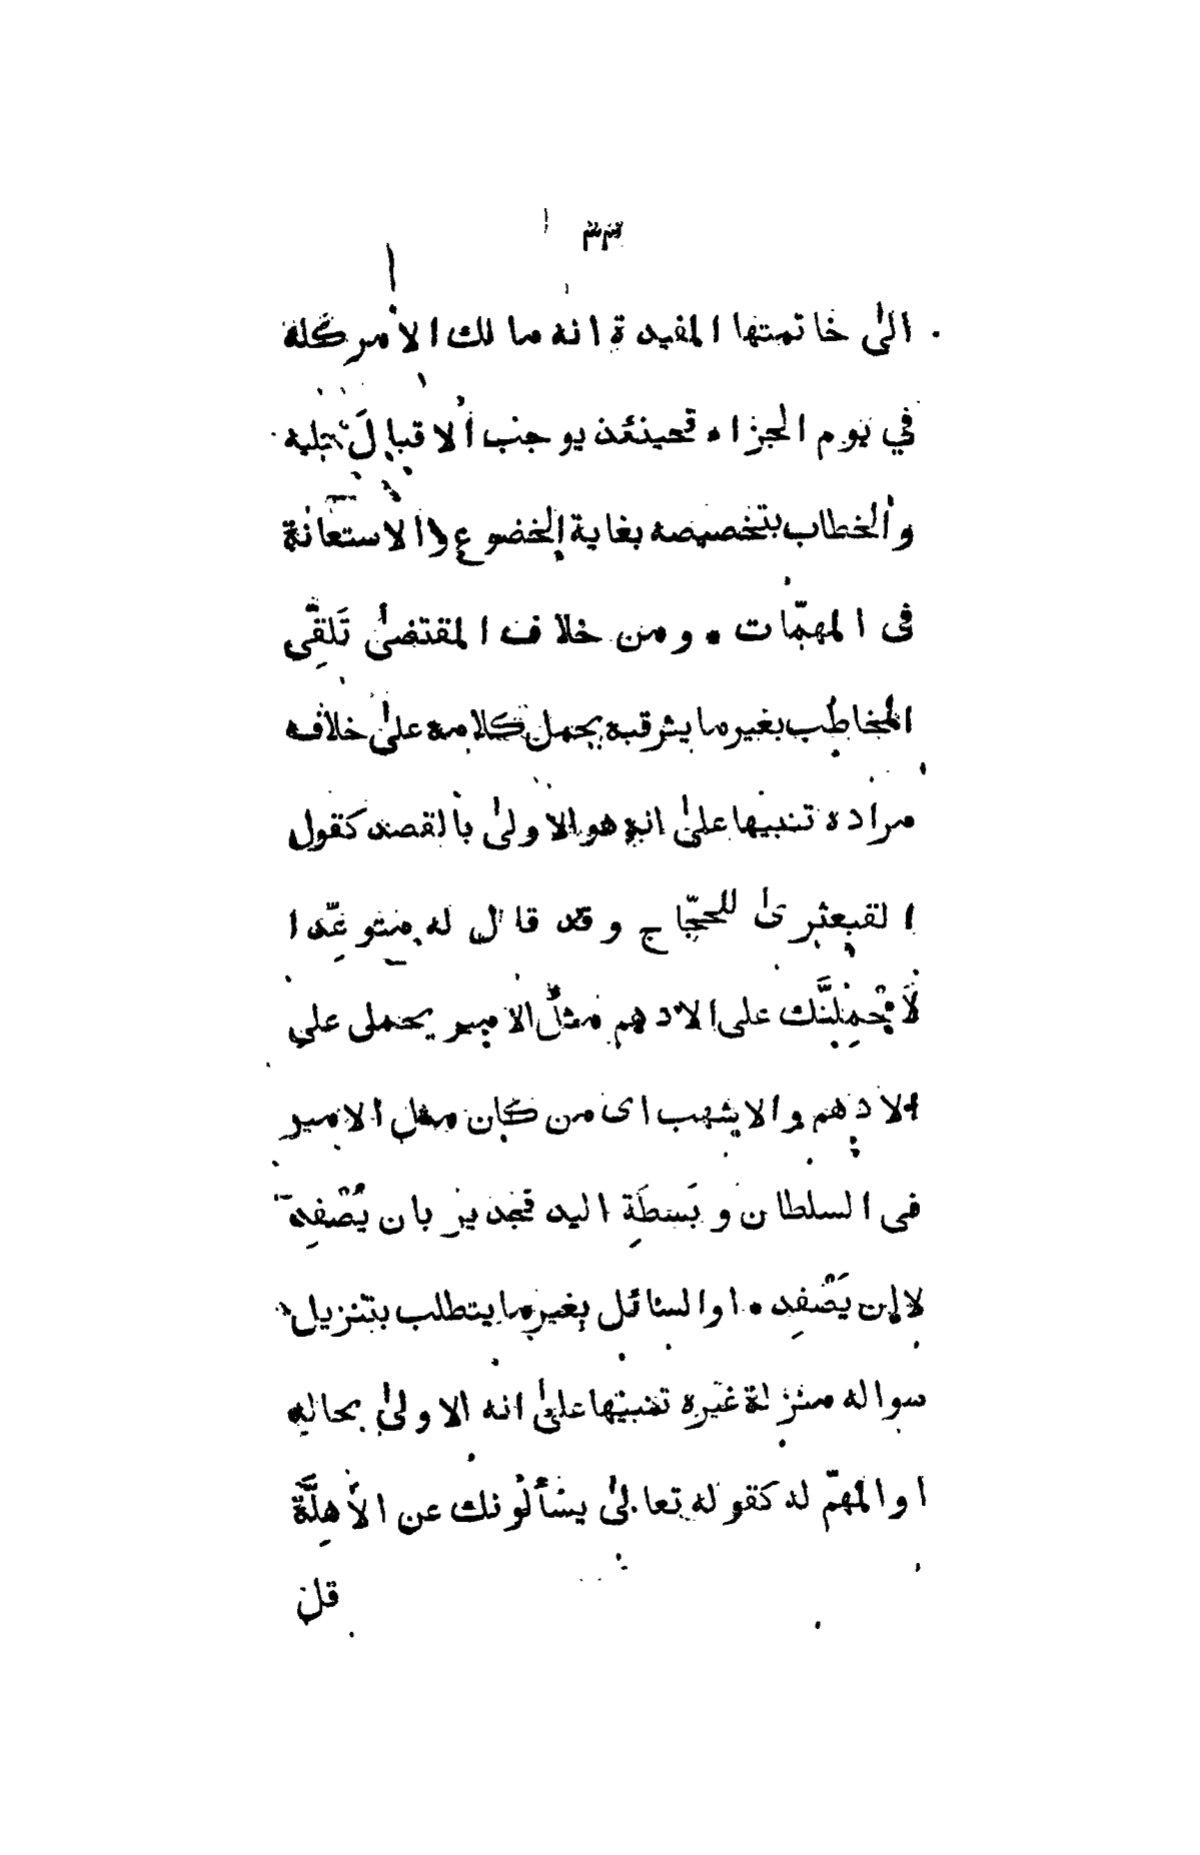 ٣٣
الىٰ خاتمتها المفيدة انه مالك الامر كله
في يوم الجزاء فحينئذ يوجب الاقبالَ عليه
والخطاب بتخصيصه بغاية الخضوع والاستعانة
فى المهمّات • ومن خلاف المقتضىٰ تَلقِّى
المخاطب بغير ما يترقبه بحمل كلامه علىٰ خلاف
مراده تنبيها علىٰ انه هو الاولىٰ بالقصد كقول
القبعثرىٰ للحجّاج وقد قال له متوعِّدا
لَاَحْمِلنَّك على الادهم مثلُ الامير يحمل على
الادهم والاشهب اى من كان مثل الامير
فى السلطان وبَسطَةِ اليد فجدير بان يُصْفِد
لا ان يَصْفِد • او السائل بغير ما يتطلب بتنزيل
سواله منزلة غيره تنبيها علىٰ انه الاولىٰ بحاله
او المهمّ له كقوله تعالىٰ يسْألُونك عن الأَهِلَّة
قل